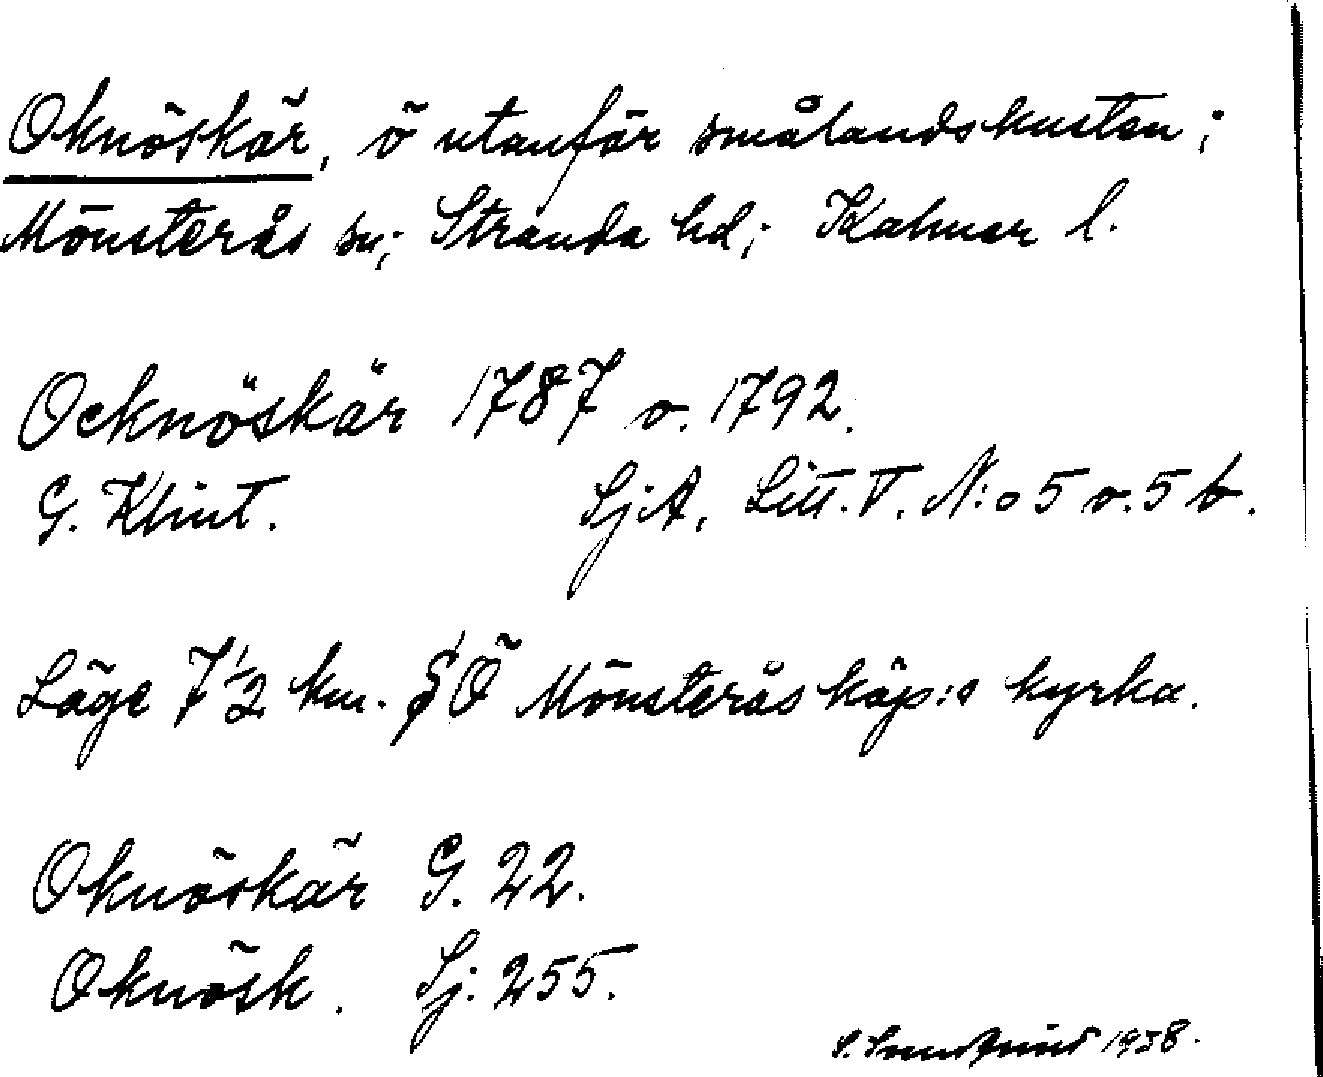 Oknöskär, ö utanför smålandskusten;
Mönsterås sn; Stranda hd; Kalmar l.
Ocknöskär 1787 o. 1792.
G. Klint. SjA, Litt. T. N:o 5 o. 5 b.
Läge 7 1/2 km. SÖ Mönsterås köp:s kyrka.
Oknöskär G. 22.
Oknösk. Sj. 255.
S. 1938.